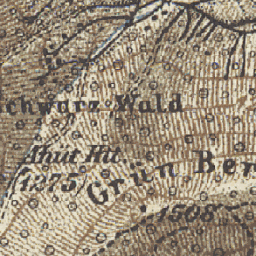 chwarz Wald
Hüt
1275
Grün Ber
1508